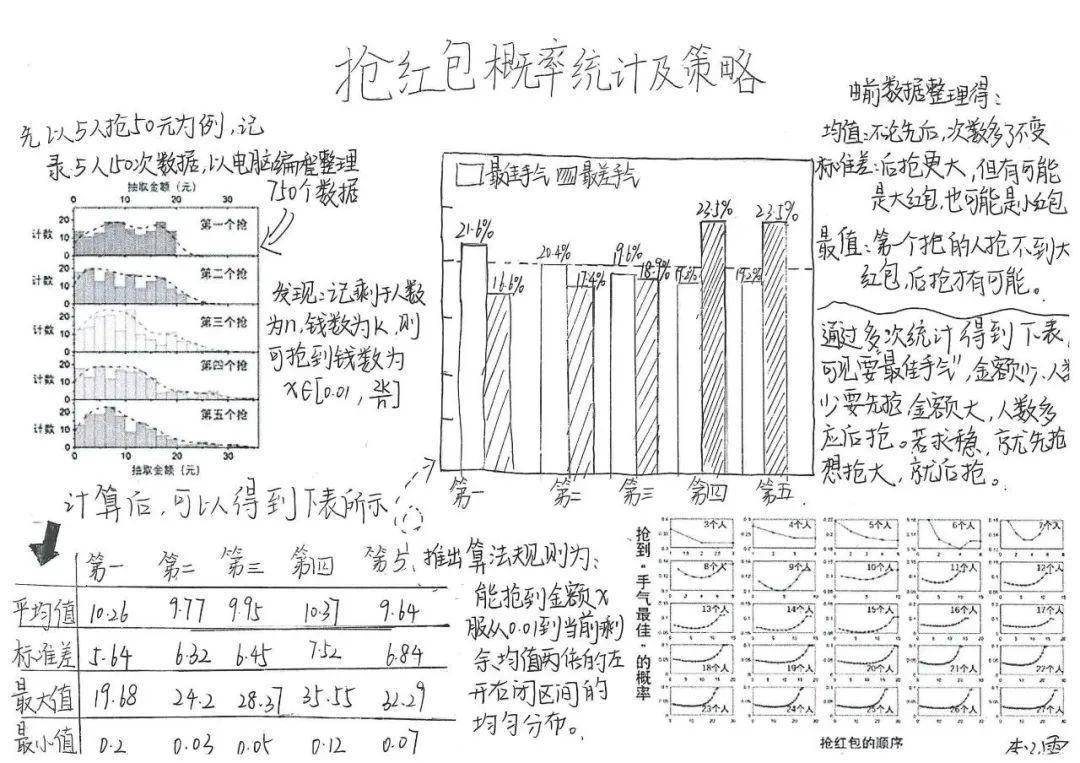 抢红包概率统计及策略
先以5人抢50元为例,记
录5人150次数据,以电脑编程整理
750个数据
抽取金额(元)
0 10 20 30
计数
20
10
0
第一个抢
计数
20
10
0
第二个抢
计数
20
10
0
第三个抢
计数
20
10
0
第四个抢
计数
20
10
0
第五个抢
0 10 20 30
抽取金额(元)
发现:记剩于人数
为n,钱数为k,则
可抢到钱数为
x∈[0.01,2k/n]
最佳手气 最差手气
21.6% 16.6% 20.4% 17.4% 19.6% 18.9% 23.5% 23.5%
第一 第二 第三 第四 第五
由前数据整理得:
均值:不论先后,次数多了不变
标准差:后抢更大,但有可能
是大红包,也可能是小红包
最值:第一个抢的人抢不到大
红包,后抢才有可能。
通过多次统计得到下表,
可见要"最佳手气",金额少,人
少要先抢,金额大,人数多
应后抢。若求稳,就先抢
想抢大,就后抢。
计算后,可以得到下表所示
第一 第二 第三 第四 第五
平均值 10.26 9.77 9.95 10.37 9.64
标准差 5.64 6.32 6.45 7.52 6.84
最大值 19.68 24.2 28.37 35.55 32.29
最小值 0.2 0.03 0.05 0.12 0.07
推出算法规则为:
能抢到金额x
服从0.01到当前剩
余均值两倍的左
开右闭区间的
均匀分布。
抢到"手气最佳"的概率
3个人 4个人 5个人 6个人 7个人
8个人 9个人 10个人 11个人 12个人
13个人 14个人 15个人 16个人 17个人
18个人 19个人 20个人 21个人 22个人
23个人 24个人 25个人 26个人 27个人
抢红包的顺序